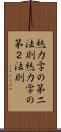 熱力学の第二
法則熱力学の
第２法則